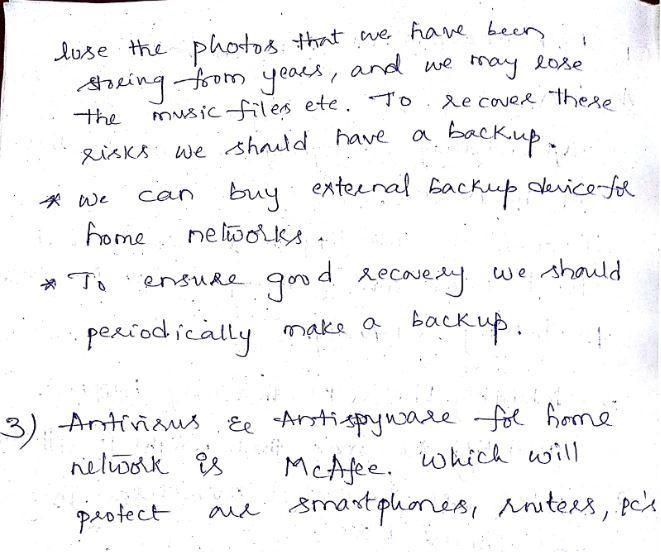 lose the photos that we have been
storing from years, and we may lose
the music files etc. To recover these
risks we should have a backup.
* We can buy external backup device for
home networks.
* To ensure good recovery we should
periodically make a backup.
3) Antivirus & Antispyware for home
network is McAfee. which will
protect our smartphones, routers, pc's